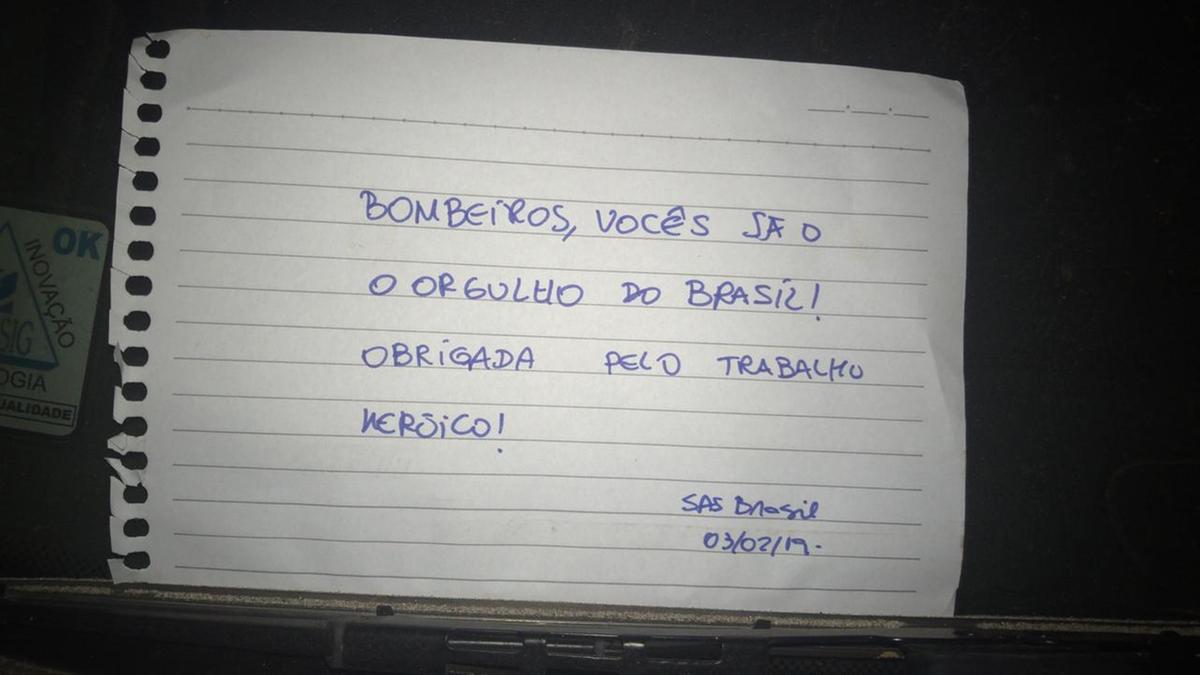 BOMBEIROS, VOCÊS SÃO
O ORGULHO DO BRASIL!
OBRIGADA PELO TRABALHO
HERÓICO!
SAS Brasil
03/02/19.
OK
INOVAÇÃO
SIG
OGIA
UALIDADE